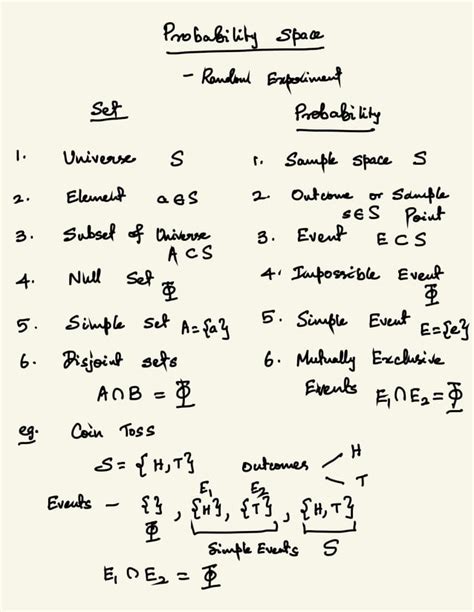 Probability Space
- Random Experiment
Set
Probability
1. Universe S
1. Sample space S
2. Element a∈S
2. Outcome or Sample Point s∈S
3. Subset of Universe
A⊂S
3. Event E⊂S
4. Null Set Φ
4. Impossible Event
Φ
5. Simple set A={a}
5. Simple Event E={e}
6. Disjoint sets
A∩B = Φ
6. Mutually Exclusive
Events E₁∩E₂=Φ
eg. Coin Toss
S={H,T} outcomes H
T
E₁ E₂
Events - {}, {H}, {T}, {H,T}
Φ Simple Events S
E₁∩E₂ = Φ